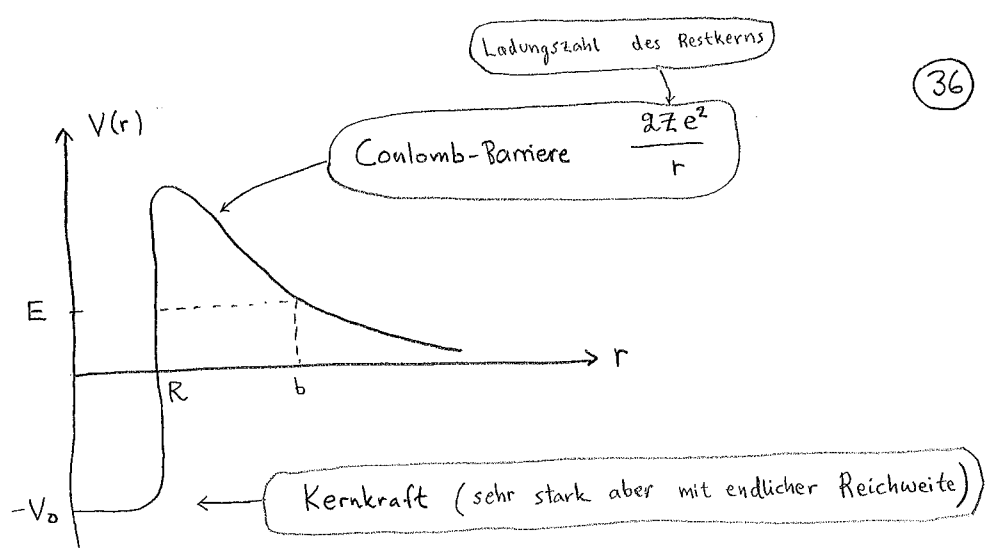 Ladungszahl des Restkerns
36
V(r)
Coulomb-Barriere 2Ze²/r
E
r
R
b
-V₀
Kernkraft (sehr stark aber mit endlicher Reichweite)